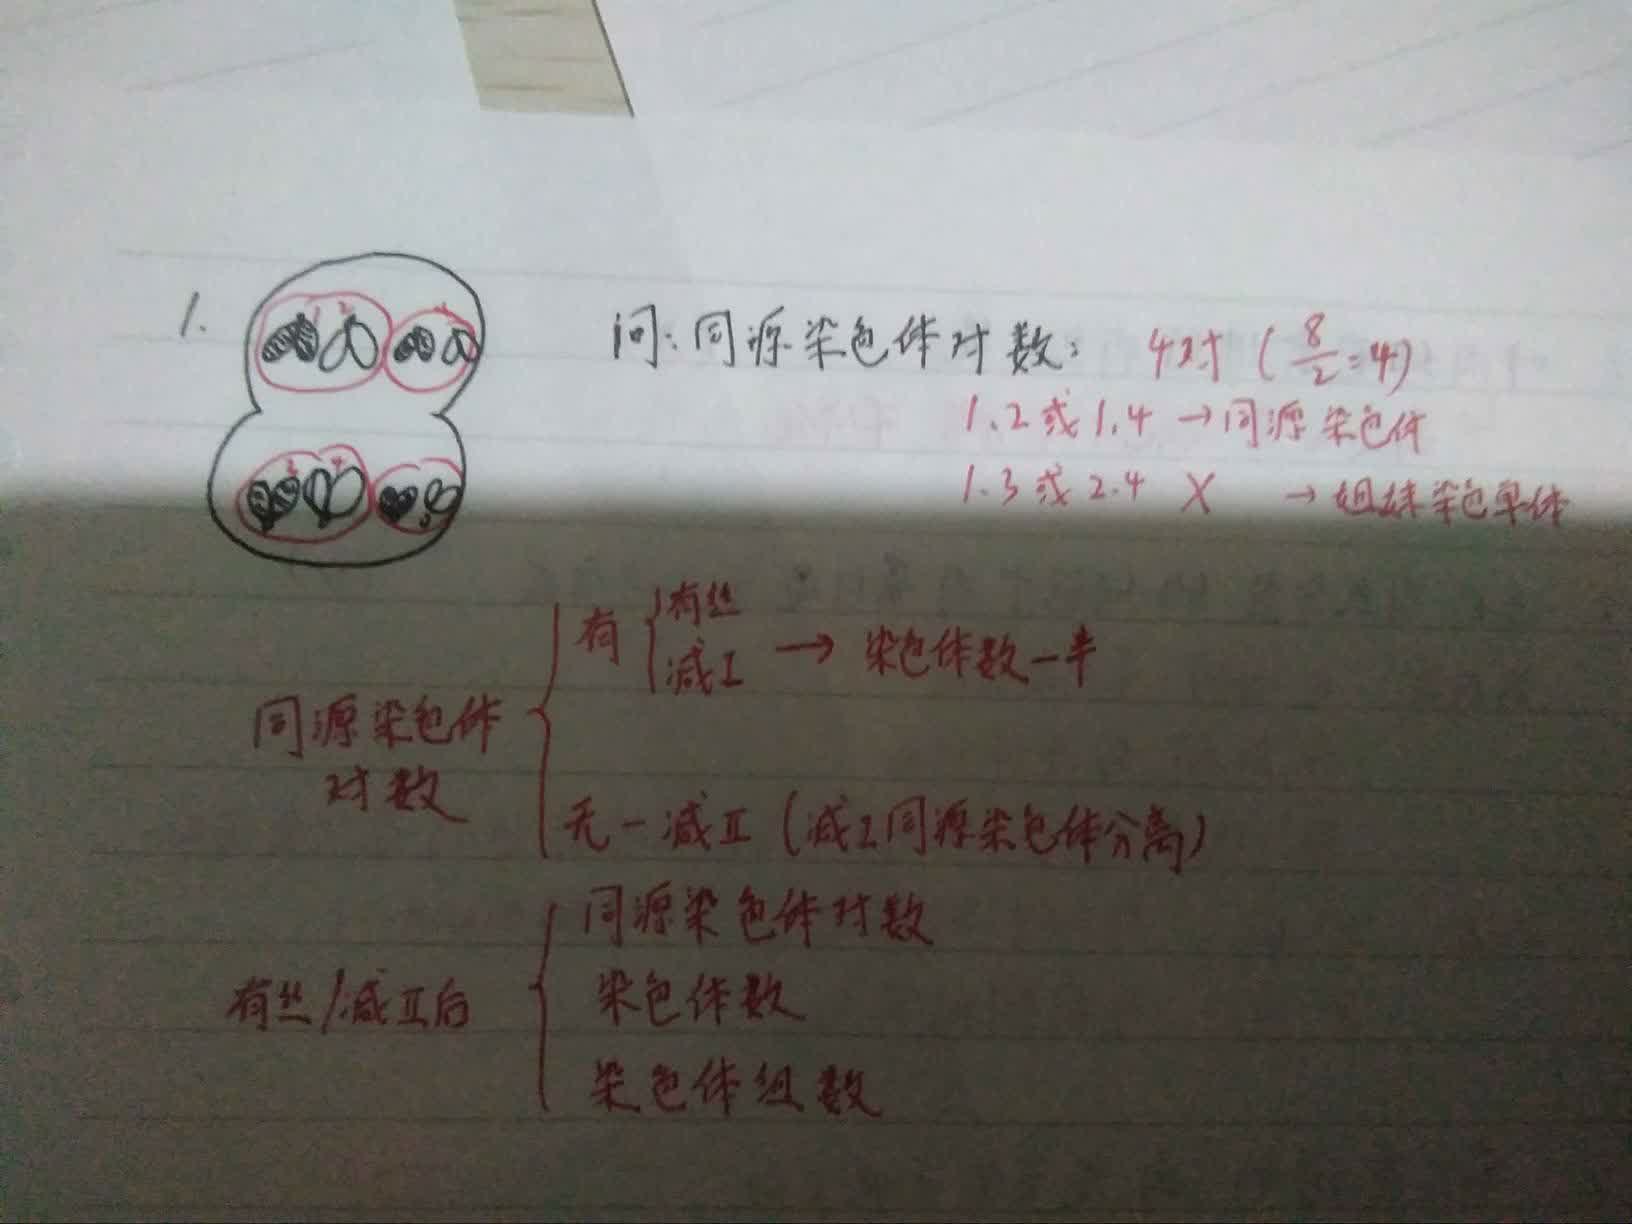 1.
1 2
3 4
问：同源染色体对数： 4对 (8/2=4)
1.2或1.4 →同源染色体
1.3或2.4 X →姐妹染色单体
同源染色体
对数
有
有丝
减I → 染色体数一半
无—减II (减I同源染色体分离)
有丝/减II后
同源染色体对数
染色体数
染色体组数